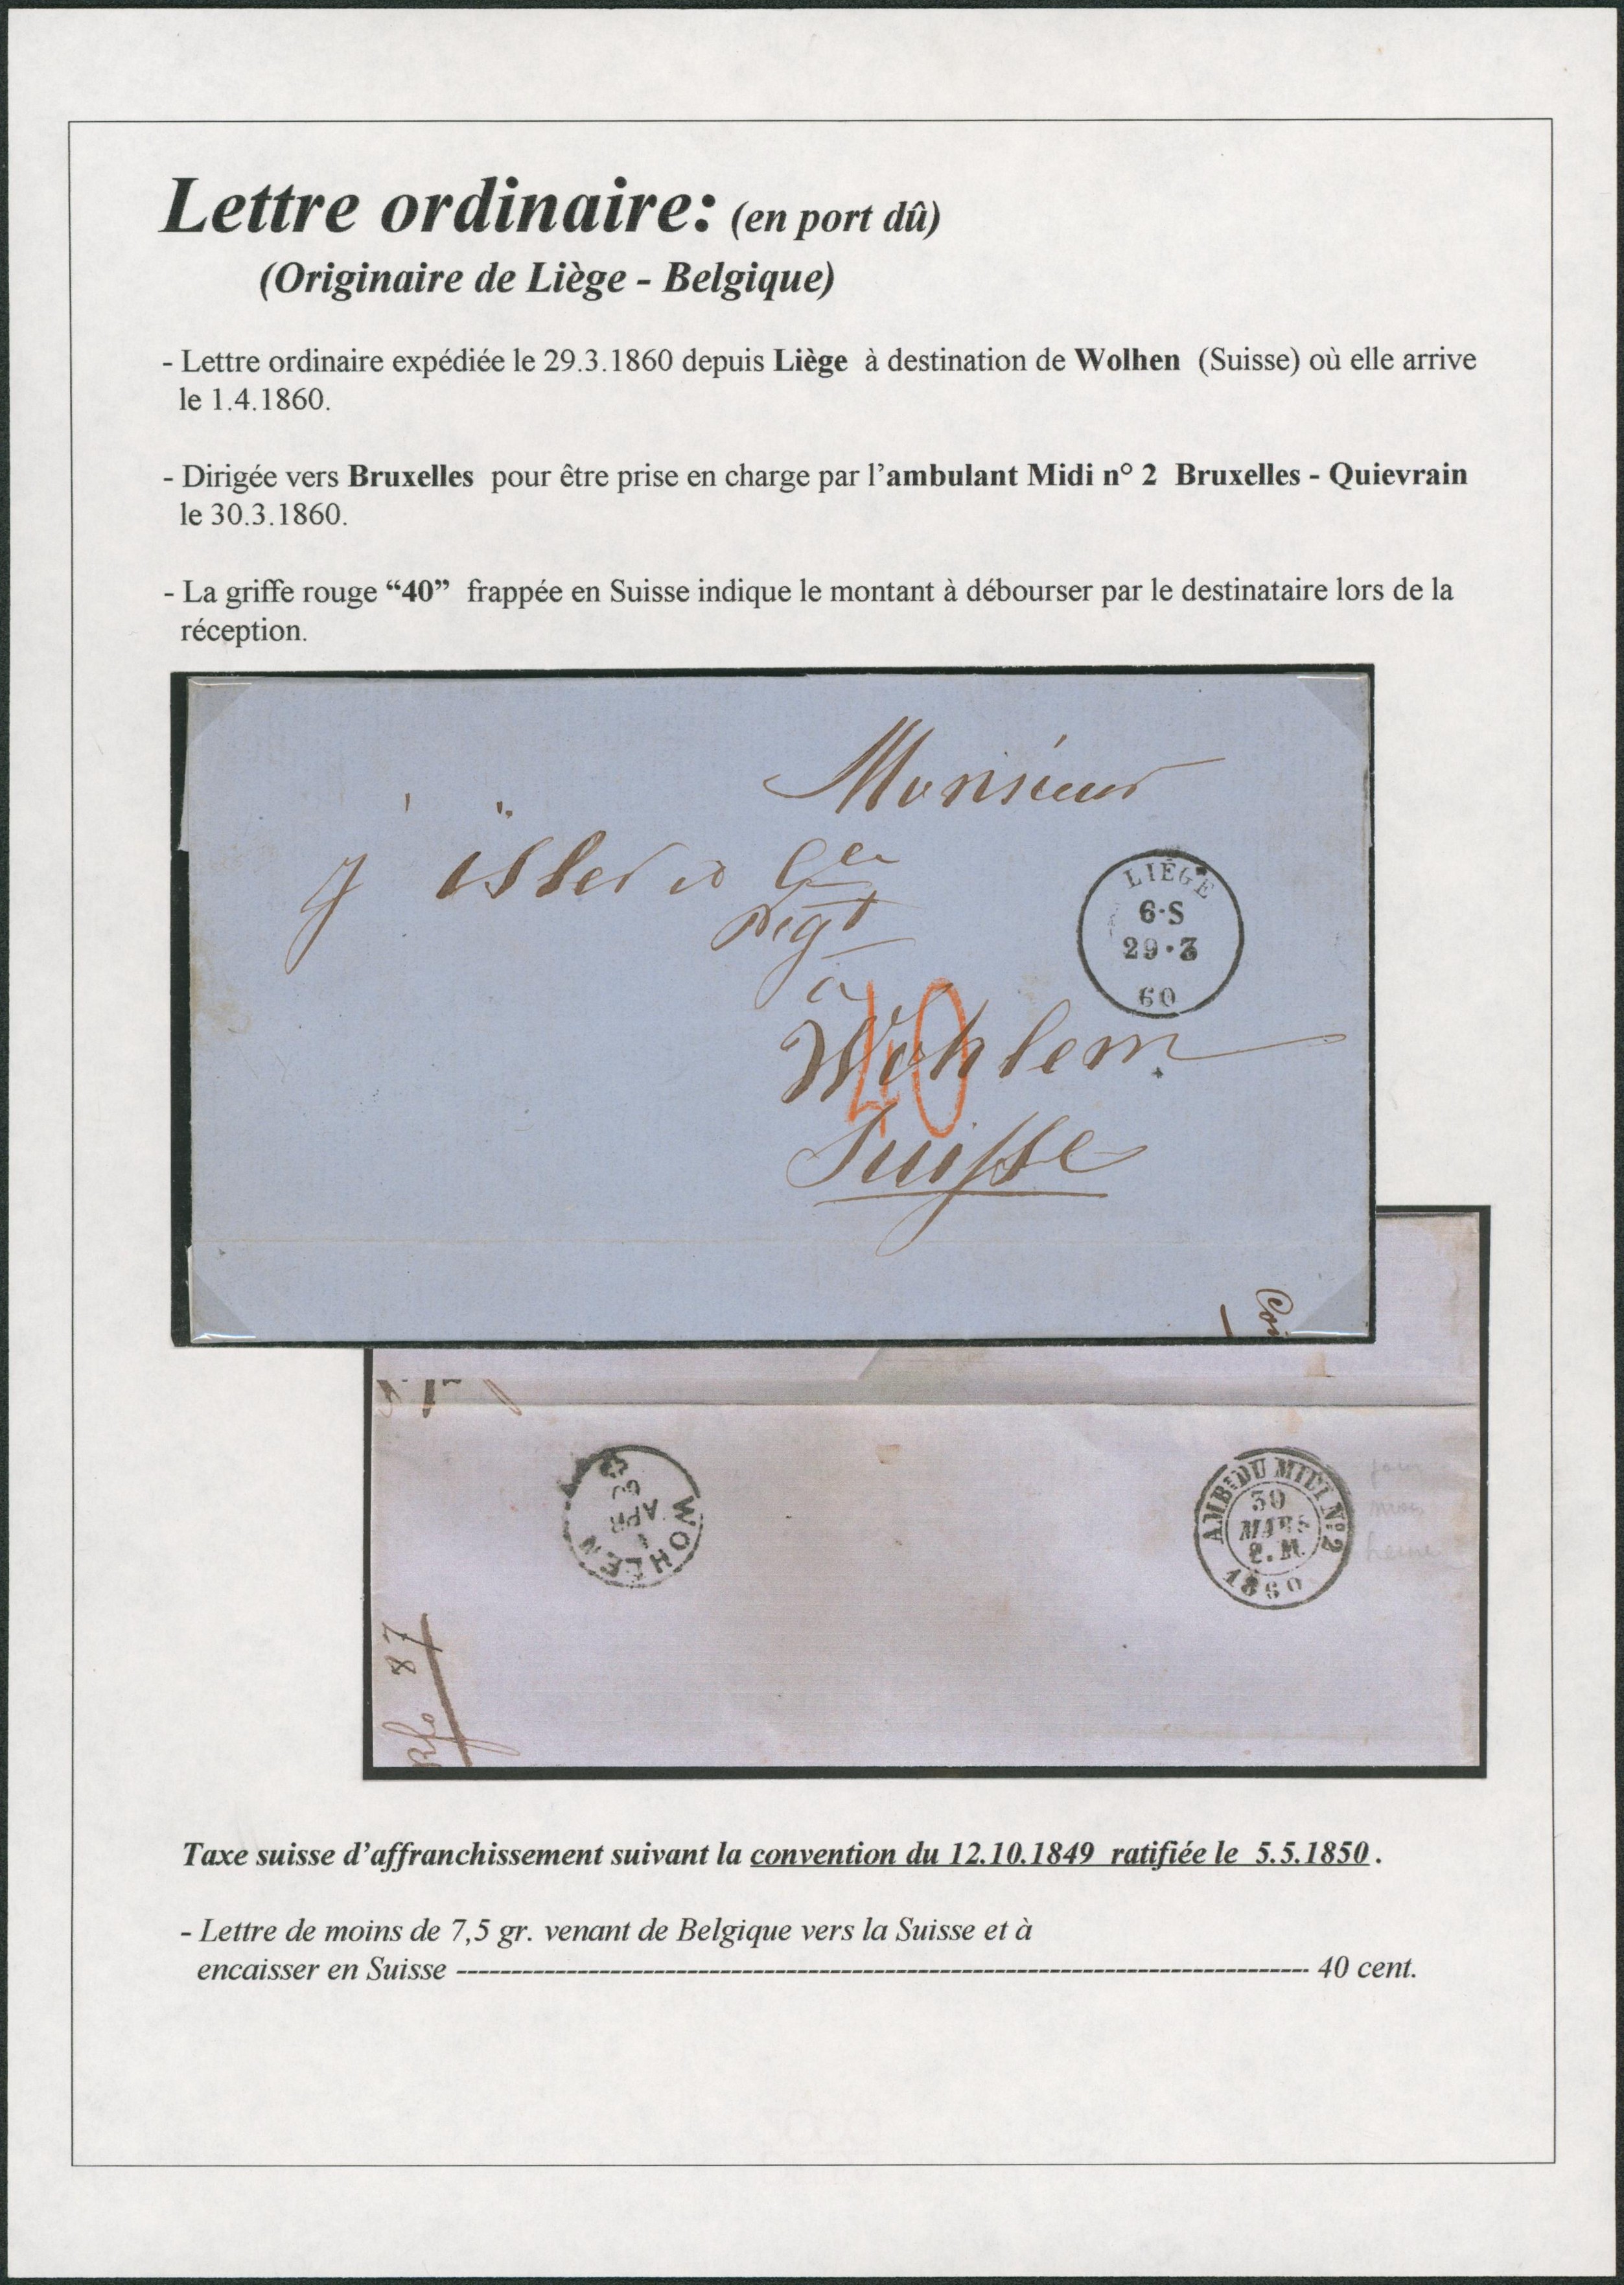 Lettre ordinaire: (en port dû)
(Originaire de Liège - Belgique)
- Lettre ordinaire expédiée le 29.3.1860 depuis Liège à destination de Wolhen (Suisse) où elle arrive
le 1.4.1860.
- Dirigée vers Bruxelles pour être prise en charge par l'ambulant Midi n° 2 Bruxelles - Quievrain
le 30.3.1860.
- La griffe rouge “40” frappée en Suisse indique le montant à débourser par le destinataire lors de la
réception.
Monsieur
J isler & Cie
Negt
à
Wohlen
Suisse
40
LIÉGE
6·S
29·3
60
WOHLEN
1
APR
60
AMBt DU MIDI No 2
30
MARS
1860
87
Taxe suisse d'affranchissement suivant la convention du 12.10.1849 ratifiée le 5.5.1850.
- Lettre de moins de 7,5 gr. venant de Belgique vers la Suisse et à
encaisser en Suisse ------------------------------------------------------------------------------ 40 cent.